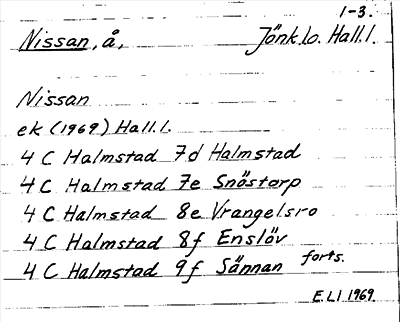 1-3.
Nissan, å, Jönk.lo. Hall.l.
Nissan
ek (1969) Hall.l.
4 C Halmstad 7d Halmstad
4 C Halmstad 7e Snöstorp
4 C Halmstad 8e Vrangelsro
4 C Halmstad 8f Enslöv
4 C Halmstad 9f Sännan forts.
E.LI 1969